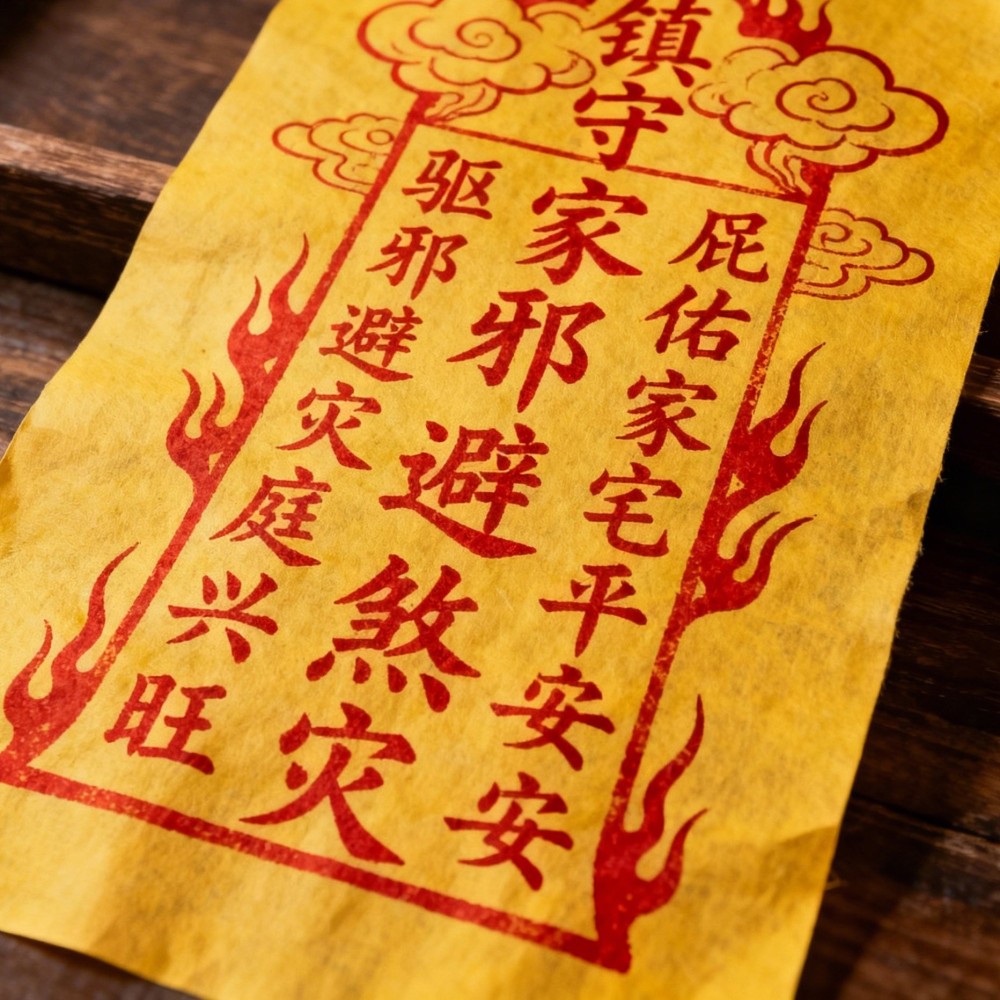 屁佑家宅平安安
镇守家邪避煞灾
驱邪避灾庭兴旺